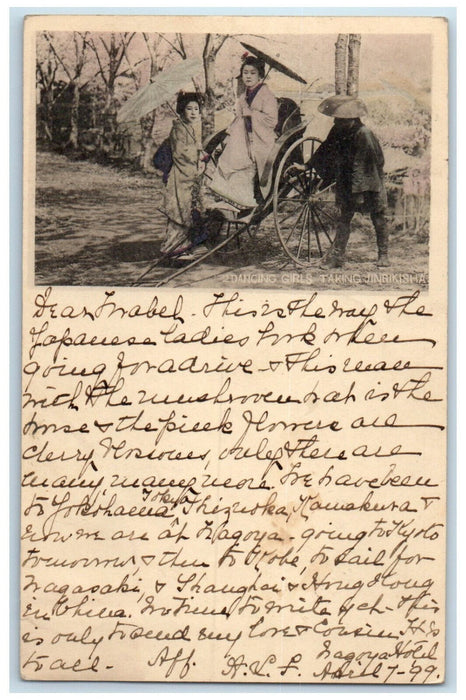 DANCING GIRLS TAKING JINRIKISHA
Dear Mabel. This is the way the
Japanese ladies look when
going for a drive - & this man
with the mushroom hat is the
horse & the pink flowers are
cherry blossoms, only there are
many, many more. We have been
to Yokohama Tokyo Shizuoka, Kamakura &
now we are at Nagoya - going to Kyoto
tomorrow, & then to Kobe, to sail for
Nagasaki & Shanghai & Hong Kong
in China. No time to write yet - this
is only to send my love & Cousin H's
to all - Aff. H. L. L. Nagoya Hotel
April 7 - 99.